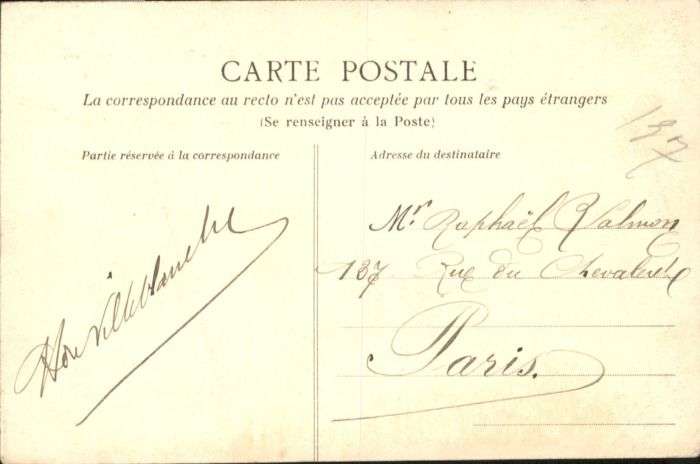 CARTE POSTALE
La correspondance au recto n'est pas acceptée par tous les pays étrangers
(Se renseigner à la Poste)
Partie réservée à la correspondance
Adresse du destinataire
137
Mr. Raphaël Valmon
137 Rue du Chevaleret
Paris.
Villeblanche